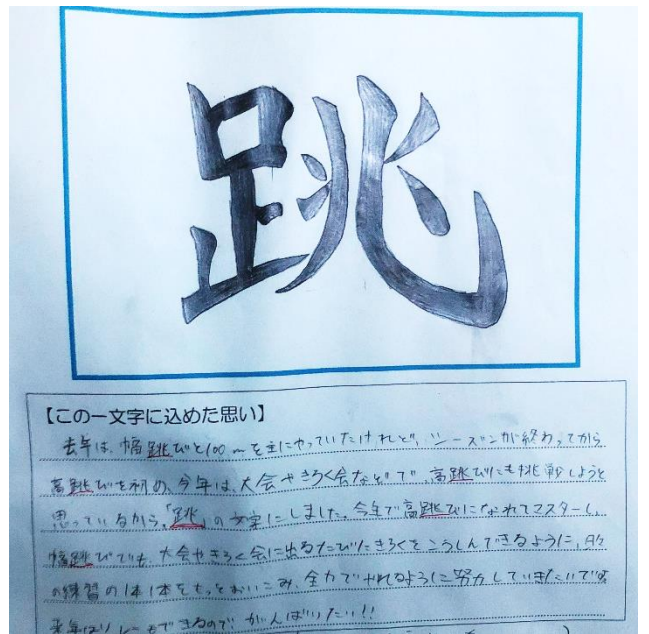 跳
【この一文字に込めた思い】
去年は、幅跳びと100mを主にやっていたけれど、シーズンが終わってから
高跳びを初め、今年は、大会やきろく会などで、高跳びにも挑戦しようと
思っているから、「跳」の文字にしました。今年で高跳びになれてマスターし、
幅跳びでも、大会やきろく会に出るたびにきろくをこうしんできるように、日々
の練習の1本1本をもっとおいこみ、全力でやれるように努力していきたいです。
来年はリレーもできるので がんばりたい!!